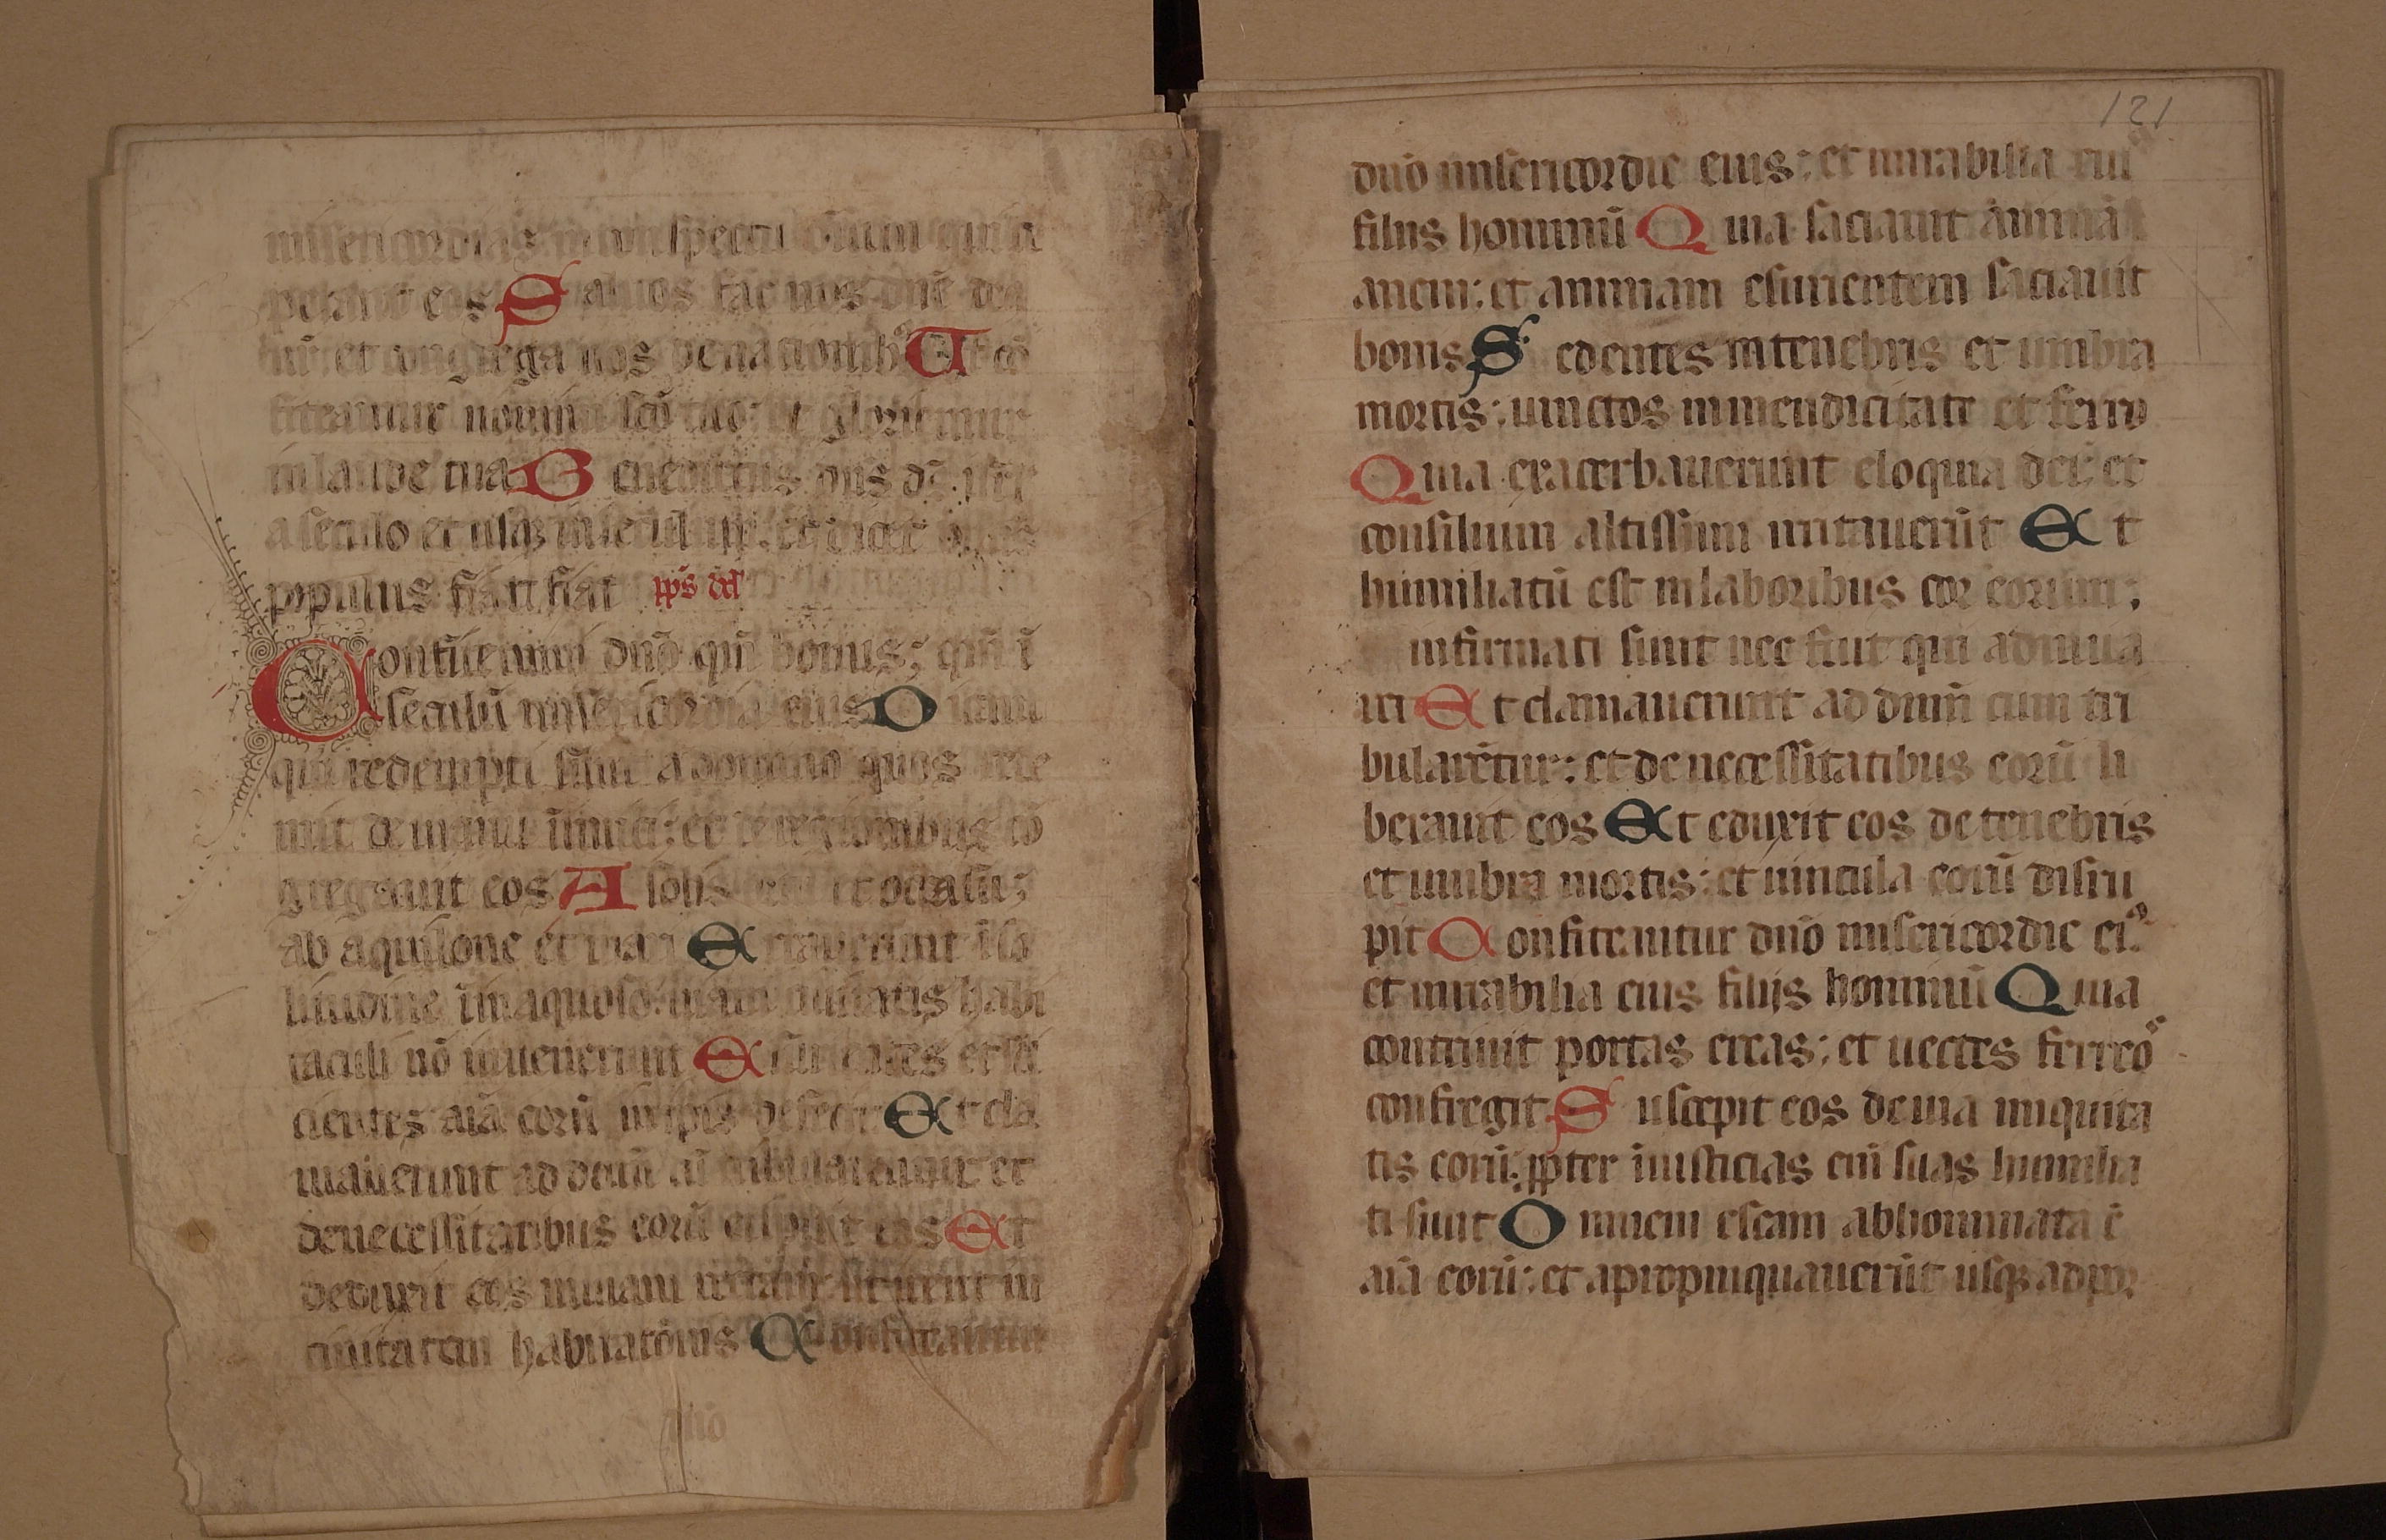 misericordias in conspectu oīum qui ce
perant eos Saluos fac nos dn̄e de9
nr̄: et congrega nos de nationib9 Ut cō
fiteamur nomini sc̄o tuo: et gloriemur
in laude tua Benedictus dn̄s ds̄ isr̄l
a seculo et usqꝫ in seculum: et dicet om̄is
populus fiat fiat pp̄s dd̄
Confitemini dn̄o qm̄ bonus; qm̄ ī
seculū misericordia eius Dicant
qui redempti sunt a domino quos rede
mit de manu inimici: et de regionibus cō
gregauit eos A solis ortu et occasu;
ab aquilone et mari Erraverunt ī so
litudine ī inaquoso: uiam ciuitatis habi
taculi nō inuenerunt Esurientes et siti
cientes aīa eorū in ipis defecit Et cla
mauerunt ad dom̄ cū tribularentur et
de necessitatibus eorū eripuit eos Et
deduxit eos in uiam rectam ut irent in
ciuitatem habitatōnis Confiteantur
121
dn̄o misericordie eius: et mirabilia ei9
filiis hominū Quia saciauit animā
anem: et animam esurientem saciauit
bonis Sedentes in tenebris et umbra
mortis: uinctos in mendicitate et ferro
Quia exacerbauerunt eloquia dei: et
consilium altissimi irritauerūt Et
humiliatū est in laboribus cor eorum:
infirmati sunt nec fuit qui adiuua
ret Et clamauerunt ad dnm̄ cum tri
bularētur: et de necessitatibus eorū li
berauit eos Et eduxit eos de tenebris
et umbra mortis: et uincula eorū disru
pit Confiteantur dn̄o misericordie ei9
et mirabilia eius filijs hominū Quia
contriuit portas ereas: et uectes ferreos
confregit Suscepit eos de uia iniquita
tis eorū: ꝓpter iniusticias em̄ suas humilia
ti sunt Omnem escam abhominata ē
aīa eorū: et apropinquauerūt usqꝫ ad por